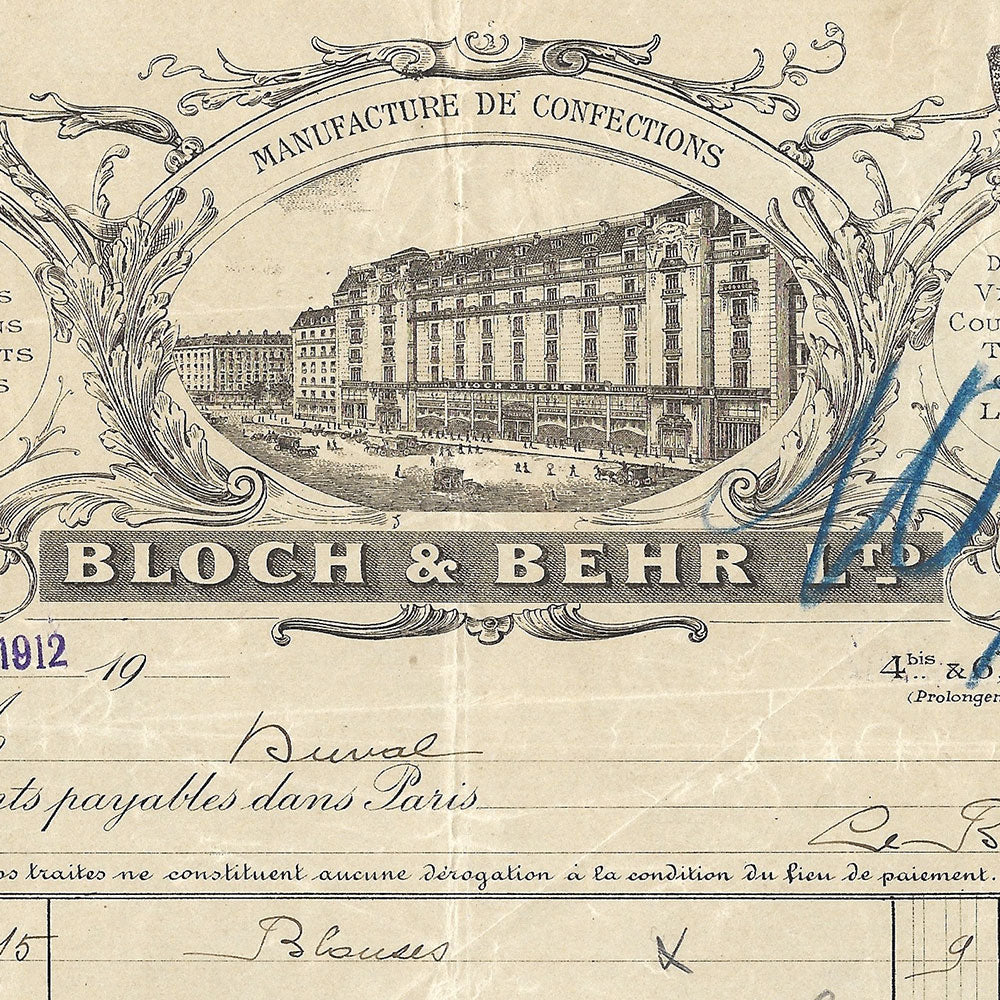 MANUFACTURE DE CONFECTIONS
BLOCH & BEHR Ld
BLOCH & BEHR LTD
1912 19
4 bis & 6,
(Prolongem
Duval
nts payables dans Paris
Le B
os traites ne constituent aucune dérogation à la condition du lieu de paiement.
15 Blouses X 9
S
NS
TS
S
D
V
COU
T
LA